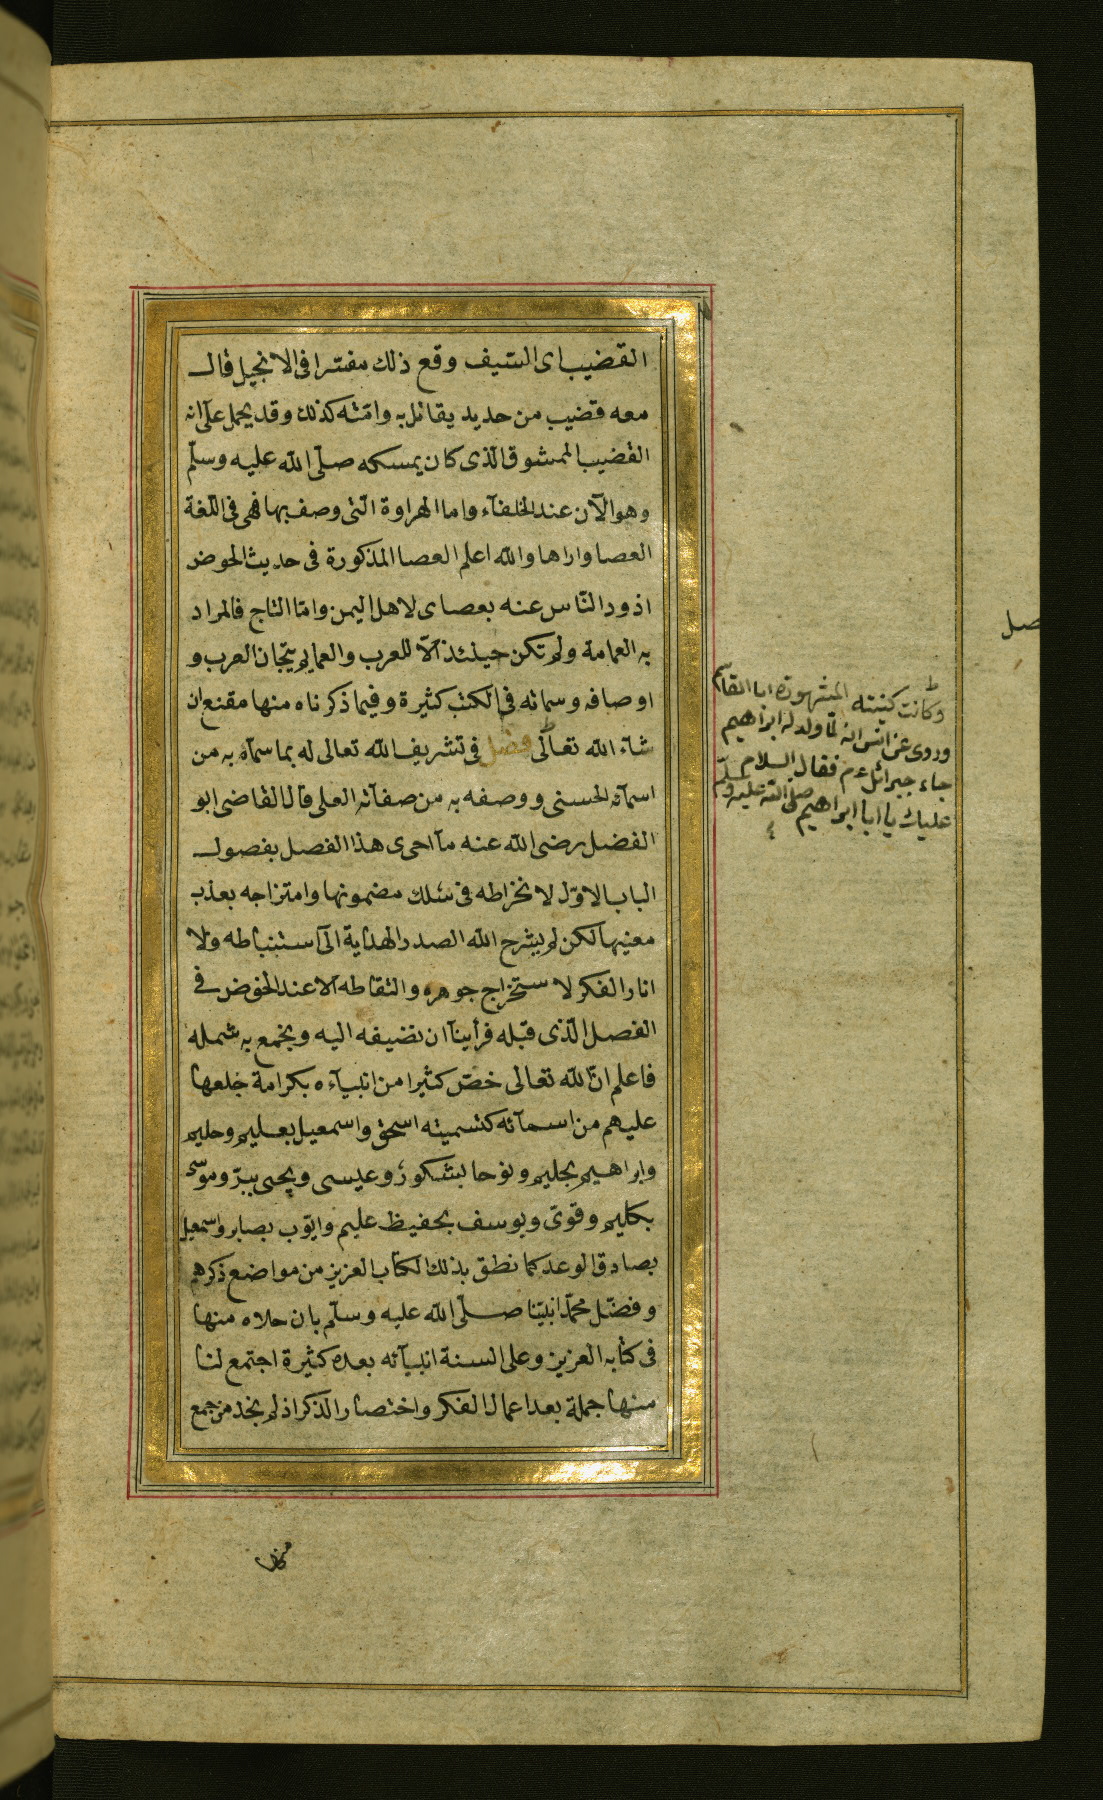 القضيب اى السيف وقع ذلك مفسرا فى الانجيل قال
معه قضيب من حديد يقاتل به وامّته كذلك وقد يحمل على انه
القضيب الممشوق الّذى كان يمسكه صلّى الله عليه وسلّم
وهو الآن عند الخلفآء واما الهراوة الّتى وصف بها فهى فى اللّغة
العصا واراها والله اعلم العصا المذكورة فى حديث الحوض
اذود النّاس عنه بعصاى لاهل اليمن وامّا التاج فالمراد
به العمامة ولم تكن حينئذ الّا للعرب والعمايم تيجان العرب و
اوصافه وسماته فى الكتب كثيرة وفيما ذكرناه منها مقنع ان
شآء الله تعالى فصل فى تشريف الله تعالى له بما سمّاه به من
اسمآئه الحسنى ووصفه به من صفاته العلى قال القاضى ابو
الفضل رضى الله عنه ما احرى هذا الفصل بفصول
الباب الاوّل لانخراطه فى سلك مضمونها وامتزاجه بعذب
معينها لكن لم يشرح الله الصدر للهداية الى استنباطه ولا
انار الفكر لاستخراج جوهره والتقاطه الا عند الخوض فى
الفصل الّذى قبله فرأينا ان نضيفه اليه ونجمع به شمله
فاعلم انّ الله تعالى خصّ كثيرا من انبيآءه بكرامة خلعها
عليهم من اسمآئه كتسميته اسحق واسمعيل بعليم وحليم
وابراهيم بحليم ونوحا بشكور وعيسى ويحيى ببرّ وموسى
بكليم وقوىّ ويوسف بحفيظ عليم وايّوب بصابر واسمعيل
بصادق الوعد كما نطق بذلك الكتاب العزيز من مواضع ذكرهم
وفضّل محمّدا نبيّنا صلّى الله عليه وسلّم بان حلاه منها
فى كتابه العزيز وعلى السنة انبيآئه بعدة كثيرة اجتمع لنا
منها جملة بعد اعمال الفكر واختصار الذكر اذ لم نجد من جمع
وكانت كنيته المشهورة ابا القاسم
وروى عن انس انه لمّا ولد له ابراهيم
جاء جبرائل عم فقال السلام
عليك يا ابا ابراهيم صلى الله عليه وسلّم
صل